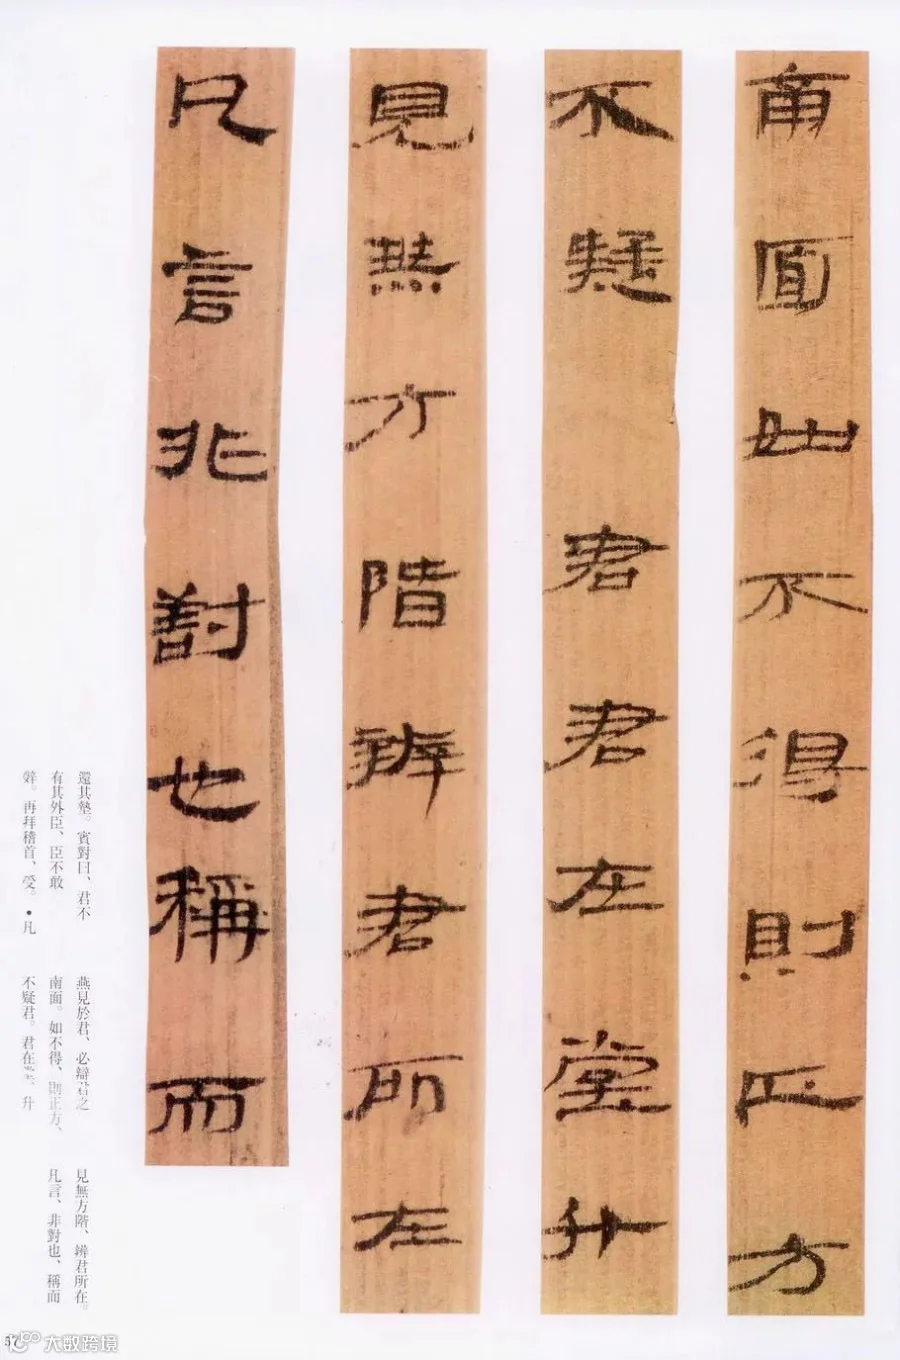 南面如不得則正方
不疑君君在堂升
見無方階辨君所在
凡言非對也稱而
還其摯。賓對曰、君不
有其外臣、臣不敢
辤。再拜稽首、受。•凡
燕見於君、必辯君之
南面。如不得、則正方、
不疑君。君在堂、升
見無方階、辨君所在。
凡言、非對也、稱而
57
大数跨境